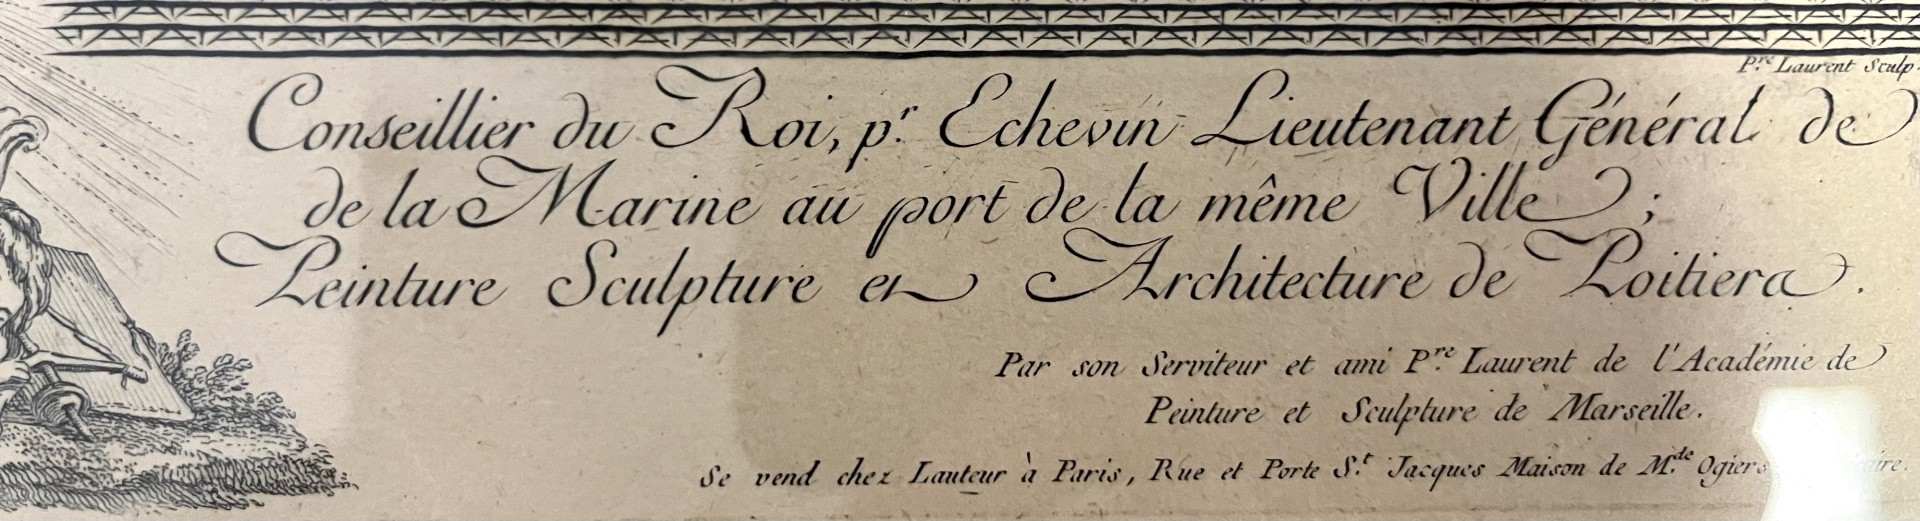 P.re Laurent Sculp.
Conseillier du Roi, p.r Echevin Lieutenant Général de
de la Marine au port de la même Ville ;
Peinture Sculpture et Architecture de Poitiers.
Par son Serviteur et ami P.re Laurent de l'Académie de
Peinture et Sculpture de Marseille.
Se vend chez Lauteur à Paris, Rue et Porte S.t Jacques Maison de M.de Ogiers